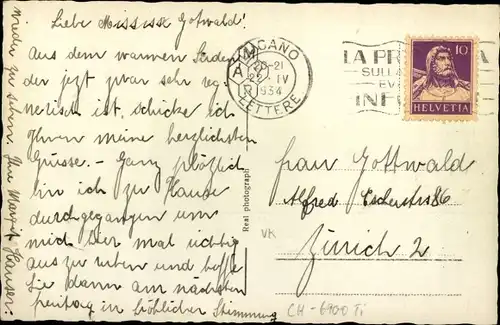 Liebe Mississ Gotwald!
Aus dem warmen Süden
der jetzt zwar sehr reg-
nerisch ist, schicke ich
Ihnen meine herzlichsten
Grüsse. – Ganz plötzlich
bin ich zu Hause
durchgegangen um
mich hier mal richtig
aus zu ruhen und hoffe
Sie dann am nächsten
Freitag in fröhlicher Stimmung
wieder zu sehen. Ihre Margrit Hauser.
LUGANO
20-21
22. IV
1934
LETTERE
LA PR
SULL
INF
10
HELVETIA
Real photograph
Frau Gottwald
Alfred Escherstr 86
Zürich 2
VK
CH-6900 Ti